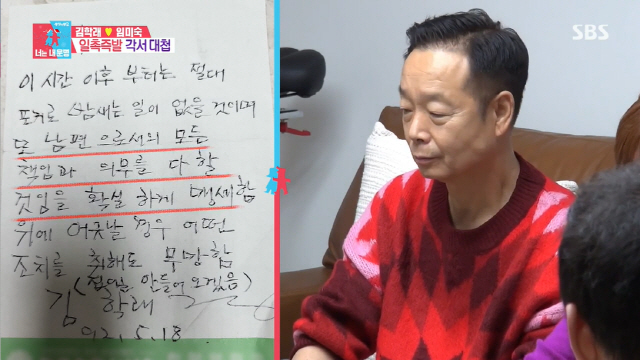 너는내운명
김학래 ♥ 임미숙
일촉즉발 각서 대첩
SBS
이 시간 이후 부터는 절대
포커로 밤새는 일이 없을 것이며
또 남편으로서의 모든
책임과 의무를 다 할
것임을 확실하게 맹세함
위에 어긋날 경우 어떤
조치를 취해도 무방함
만들어 오겠음)
김 학래
92. 5. 18